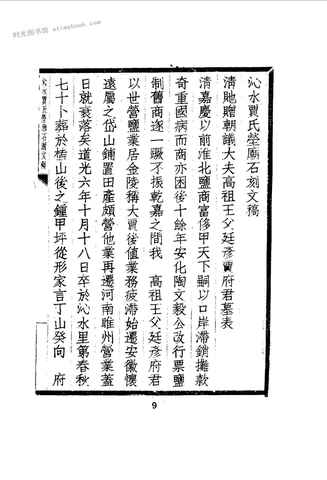 时光图书馆 etimebook.com
沁水賈氏塋廟石刻文稿
沁水賈氏塋廟石刻文稿
清貤贈朝議大夫高祖王父廷彥賈府君墓表
清嘉慶以前淮北鹽商富侈甲天下嗣以口岸滯銷攤款
奇重國病而商亦困後十餘年安化陶文毅公改行票鹽
制舊商遂一蹶不振乾嘉之間我　高祖王父廷彥府君
以世營鹽業居金陵稱大賈後値業務疲滯始遷安徽懷
遠屬之岱山鋪置田產頗營他業再遷河南睢州營業蓋
日就衰落矣道光六年十月十八日卒於沁水里第春秋
七十卜葬於楛山後之鍾甲坪從形家言丁山癸向　府
9